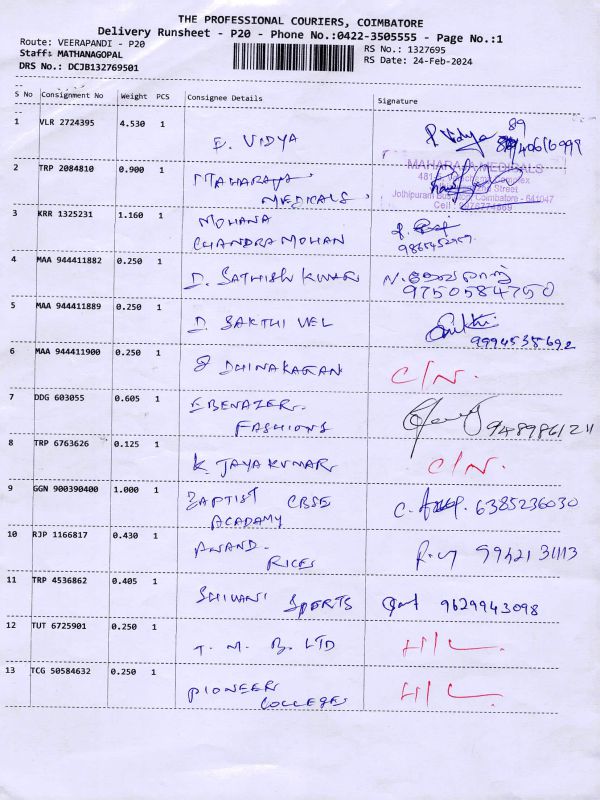 THE PROFESSIONAL COURIERS, COIMBATORE
Delivery Runsheet - P20 - Phone No.:0422-3505555 - Page No.:1
Route: VEERAPANDI - P20
Staff: MATHANAGOPAL
DRS No.: DCJB132769501
RS No.: 1327695
RS Date: 24-Feb-2024
S No Consignment No Weight PCS Consignee Details Signature
1 VLR 2724395 4.530 1 E. VIDYA P. Vidya 89
2 TRP 2084810 0.900 1 MAHARAJA MEDICALS
MAHARAJA MEDICALS
Jothipuram Coimbatore - 641047
3 KRR 1325231 1.160 1 MOHANA CHANDRAMOHAN
4 MAA 944411882 0.250 1 D. SATHISH KUMAR 9750584750
5 MAA 944411889 0.250 1 D. SAKTHI VEL Sakthi 9994535692
6 MAA 944411900 0.250 1 DHINAKARAN C/N.
7 DDG 603055 0.605 1 EBENAZER FASHIONS 9489861211
8 TRP 6763626 0.125 1 K. JAYAKUMAR C/N.
9 GGN 900390400 1.000 1 BAPTIST CBSE ACADAMY 6385236030
10 RJP 1166817 0.430 1 ANAND. RICES 9942131113
11 TRP 4536862 0.405 1 SHIVANI SPORTS 9629943098
12 TUT 6725901 0.250 1 T. M. B. LTD H/L.
13 TCG 50584632 0.250 1 PIONEER COLLEGES H/L.